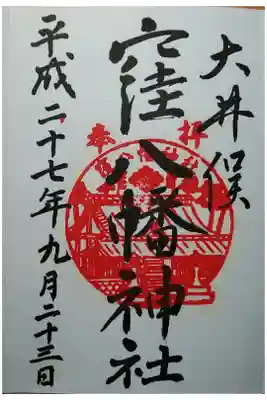 大井俣
奉拝
窪八幡神社
平成二十七年九月二十三日